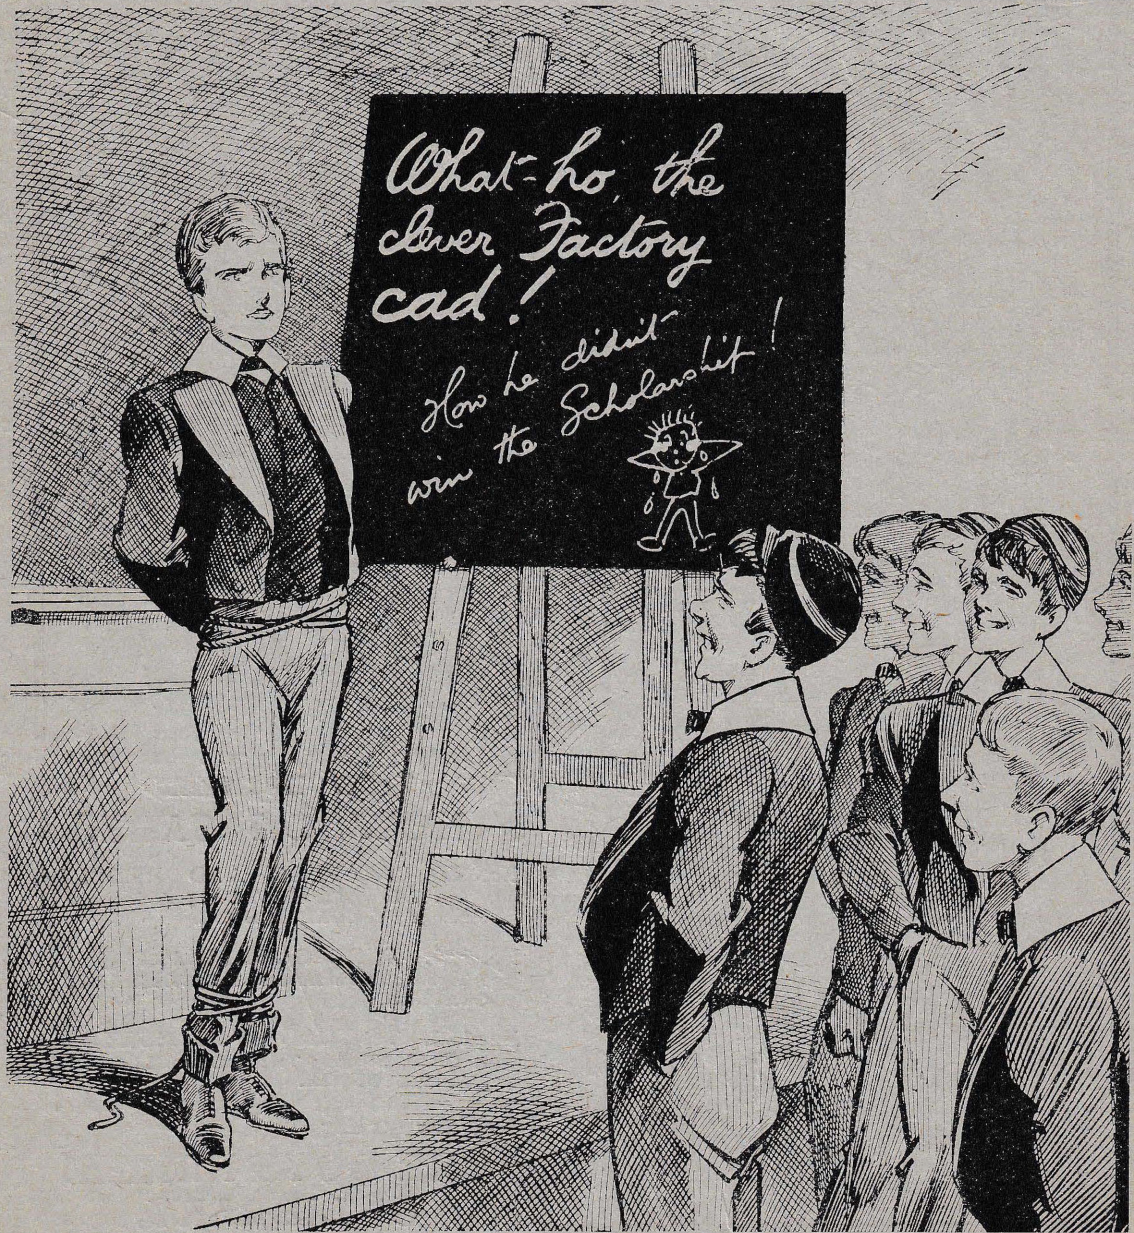 What-ho, the
clever Factory
cad!
How he didn't
win the Scholarship!